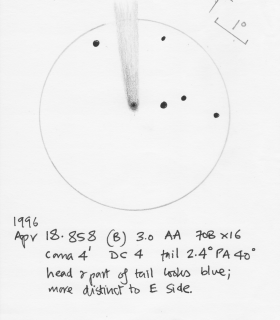 1°
1996
Apr 18.858 (B) 3.0 AA 70B x16
Coma 4' DC 4 tail 2.4° PA 40°
head & part of tail looks blue;
more distinct to E side.